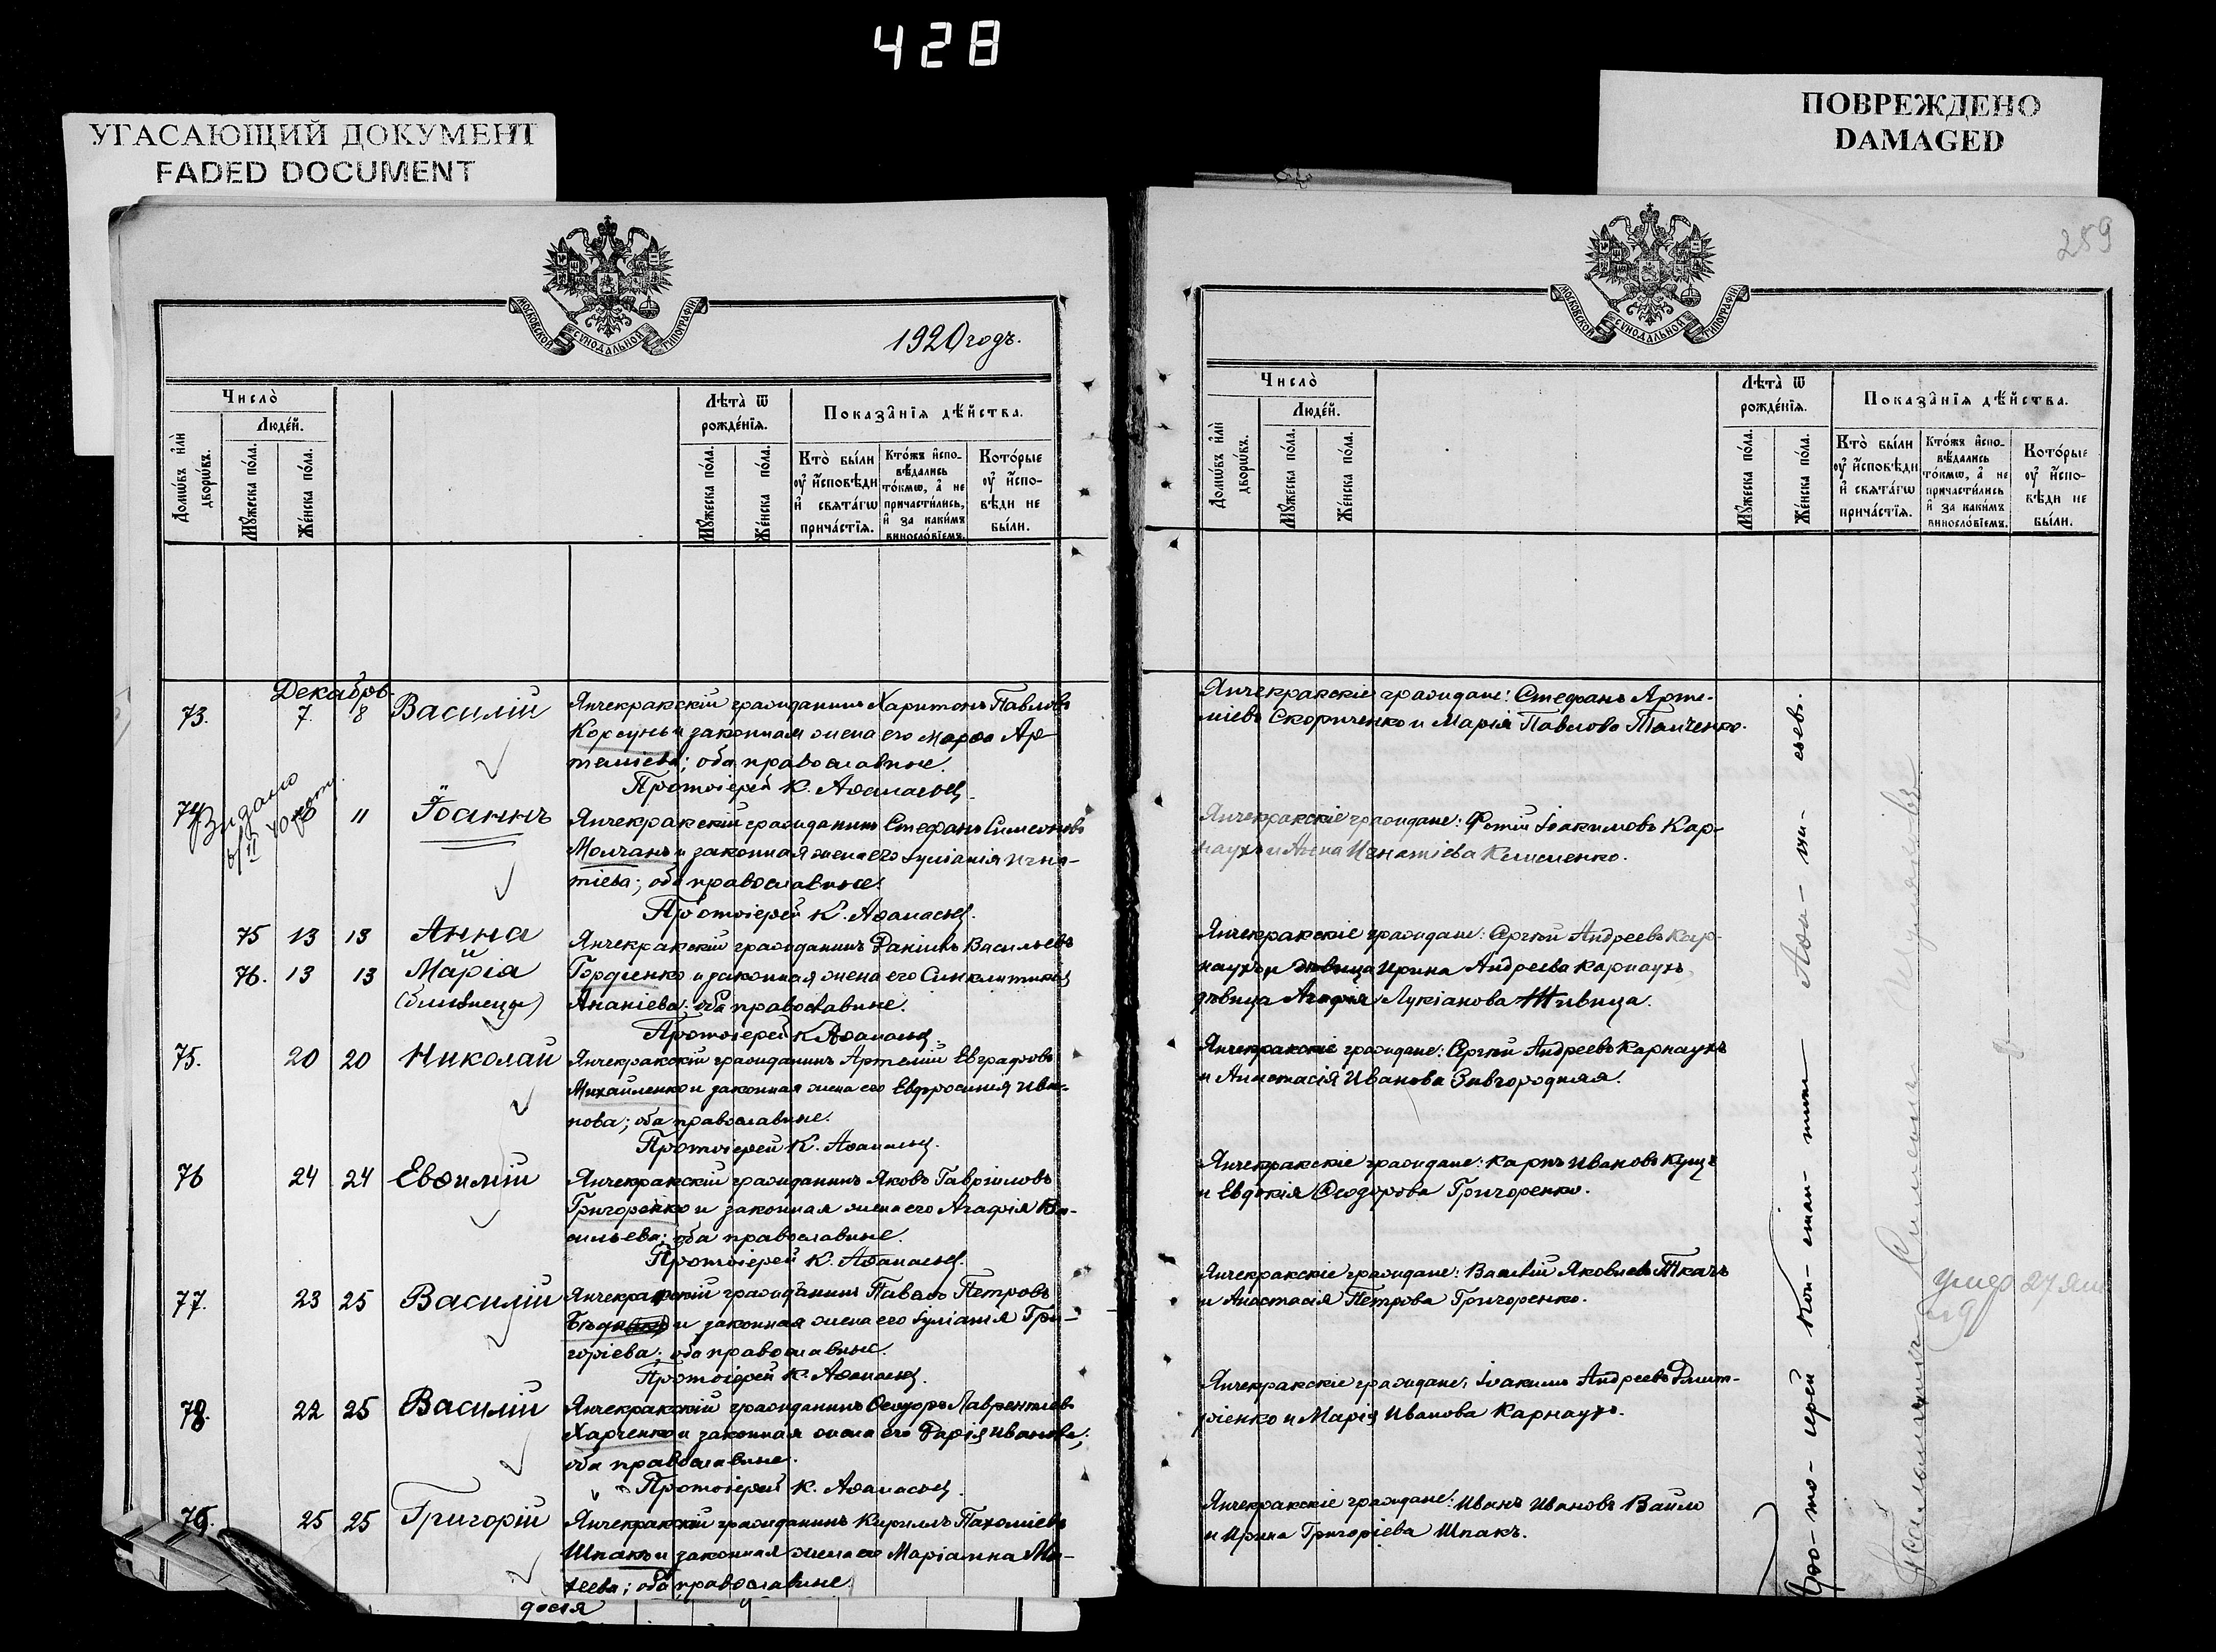 428
УГАСАЮЩИЙ ДОКУМЕНТ
FADED DOCUMENT
ПОВРЕЖДЕНО
DAMAGED
МОСКОВСКОЙ СѴНОДАЛЬНОЙ ТИПОГРАФІИ
1920 годъ.
Число̀
Людéй.
Домѡ́въ и҆лѝ дворѡ́въ.
Мꙋ́жеска по́ла.
Жéнска по́ла.
Лѣ́та ѿ рождéнїѧ.
Мꙋ́жеска по́ла.
Жéнска по́ла.
Показа̑нїѧ дѣ́йства.
Кто̀ бы́ли оу҆ и҆́сповѣди и҆ свѧта́гѡ прича́стїѧ.
Кто́жъ и҆спо-вѣ́дались то́кмѡ, а҆ не причасти́лись, и҆ за каки́мъ винословїемъ.
Кото́рые оу҆ и҆́спо-вѣди не бы́ли.
Декабрь
73. 7. 8 Василій
Янчекракскій гражданинъ Харитонъ Павловъ
Корсунь и законная жена его Марѳа Ар-
теміева; оба православные.
Протоіерей К. Аѳанасьев
74 11 Іоаннъ
Видано
Янчекракскій гражданинъ Стефанъ Симеоновъ
Молчанъ и законная жена его Іуліанія Игна-
тіева; оба православные.
Протоіерей К. Аѳанасьев.
75 13 13 Анна
и
76. 13 13 Марія
(близнецы)
Янчекракскій гражданинъ Даніилъ Васильевъ
Гордіенко и законная жена его Синклитикія
Ананіева; оба православные.
Протоіерей К Аѳанасьев
75. 20 20 Николай
Янчекракскій гражданинъ Артемій Евграфовъ
Михайленко и законная жена его Евфросинія Ива-
нова; оба православные.
Протоіерей К. Аѳанасьев.
76 24 24 Евѳимій
Янчекракскій гражданинъ Яковъ Гавріиловъ
Григоренко и законная жена его Агафія Ва-
сильева; оба православные.
Протоіерей К. Аѳанасьев.
77. 23 25 Василій
Янчекракскій гражданинъ Павелъ Петровъ
и законная жена его Іуліанія Гри-
горіева; оба православные.
Протоіерей К. Аѳанасьев.
78. 22 25 Василій
Янчекракскій гражданинъ Ѳеодоръ Лаврентіевъ
Харченко и законная жена его Дарія Иванова;
оба православные.
Протоіерей К. Аѳанасьев.
79. 25 25 Григорій
Янчекракскій гражданинъ Кириллъ Пахоміевъ
Шпакъ и законная жена его Маріанна Мо-
сеева; оба православные.
259
МОСКОВСКОЙ СѴНОДАЛЬНОЙ ТИПОГРАФІИ
Число̀
Людéй.
Домѡ́въ и҆лѝ дворѡ́въ.
Мꙋ́жеска по́ла.
Жéнска по́ла.
Лѣ́та ѿ рождéнїѧ.
Мꙋ́жеска по́ла.
Жéнска по́ла.
Показа̑нїѧ дѣ́йства.
Кто̀ бы́ли оу҆ и҆́сповѣди и҆ свѧта́гѡ прича́стїѧ.
Кто́жъ и҆спо-вѣ́дались то́кмѡ, а҆ не причасти́лись и҆ за каки́мъ винословїемъ.
Кото́рые оу҆ и҆́спо-вѣди не бы́ли.
Янчекракскіе граждане: Стефанъ Арте-
міевъ Скориченко и Марія Павлова
Янчекракскіе граждане: Фотій Іоакимовъ Кар-
наухъ и Анна Игнатіева Клименко.
Янчекракскіе граждане: Сергѣй Андреевъ Кар-
наухъ и дѣвица Ирина Андреева Карнаухъ
дѣвица Агафія Лукіанова
Янчекракскіе граждане: Сергѣй Андреевъ Карнаухъ
и Анастасія Иванова Завгородняя.
Янчекракскіе граждане: Карпъ Ивановъ Кущъ
и Евдокія Ѳеодорова Григоренко.
Янчекракскіе граждане: Василій Яковлевъ Ткачъ
и Анастасія Петрова Григоренко.
Янчекракскіе граждане: Іоакимъ Андреевъ Дмит-
ріенко и Марія Иванова Карнаухъ.
Янчекракскіе граждане: Иванъ Ивановъ Вайло
и Ирина Григоріева Шпакъ.
Про-то-іерей Кон-стан-тинъ Аѳа-на-сьевъ.
умер 27